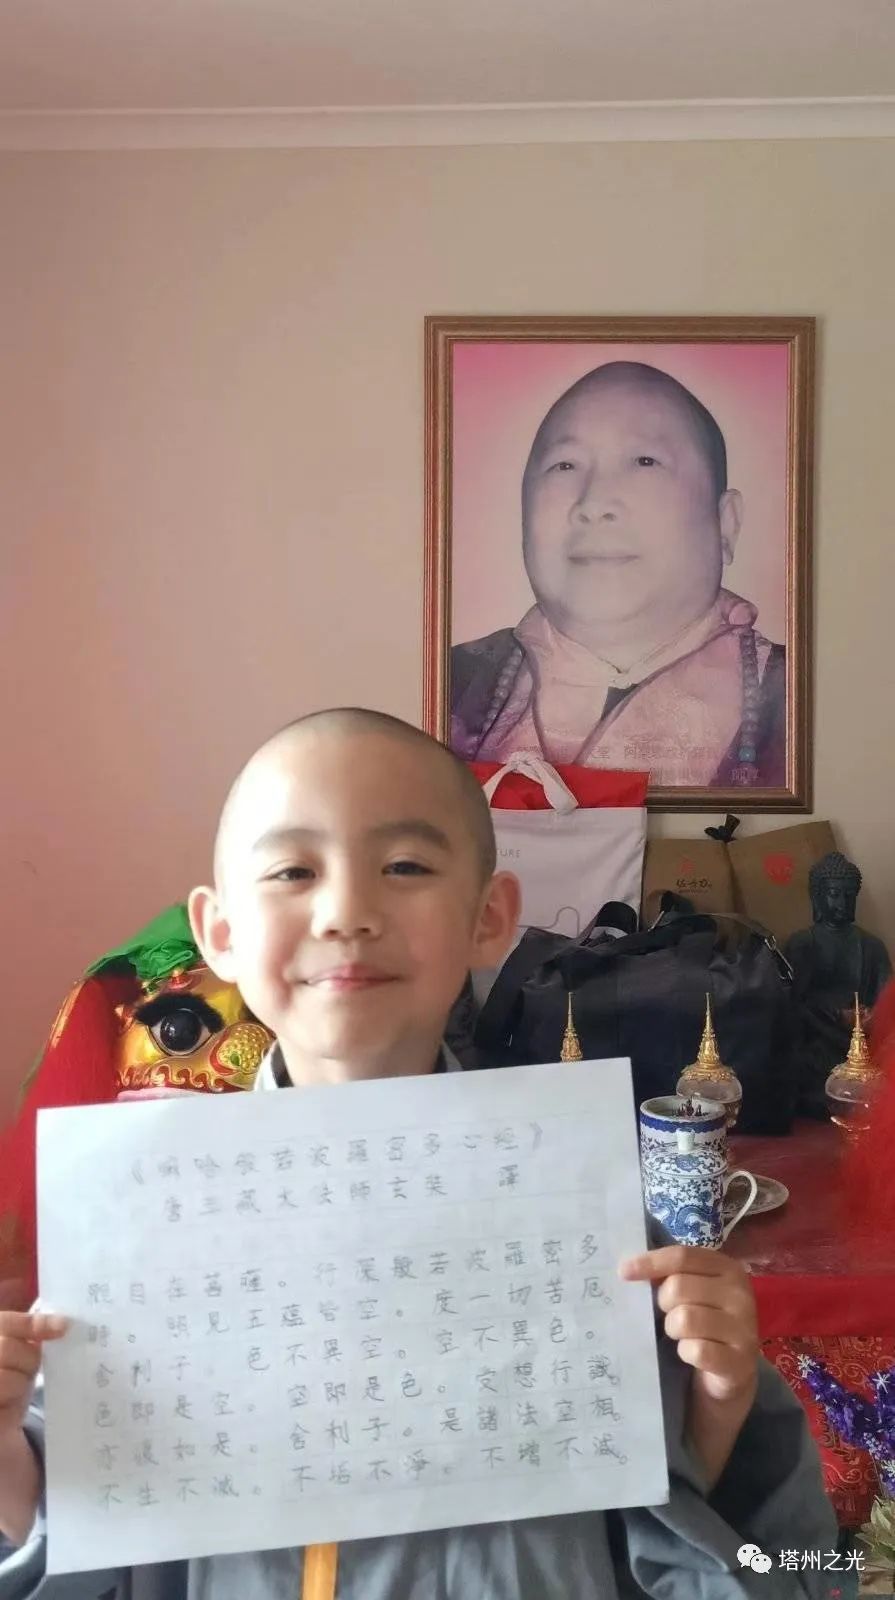 《嘛哈般若波羅密多心經》
唐三藏大法師玄奘 譯
觀自在菩薩。行深般若波羅密多
時。照見五蘊皆空。度一切苦厄。
舍利子。色不異空。空不異色。
色即是空。空即是色。受想行識。
亦復如是。舍利子。是諸法空相。
不生不滅。不垢不淨。不增不減。
塔州之光